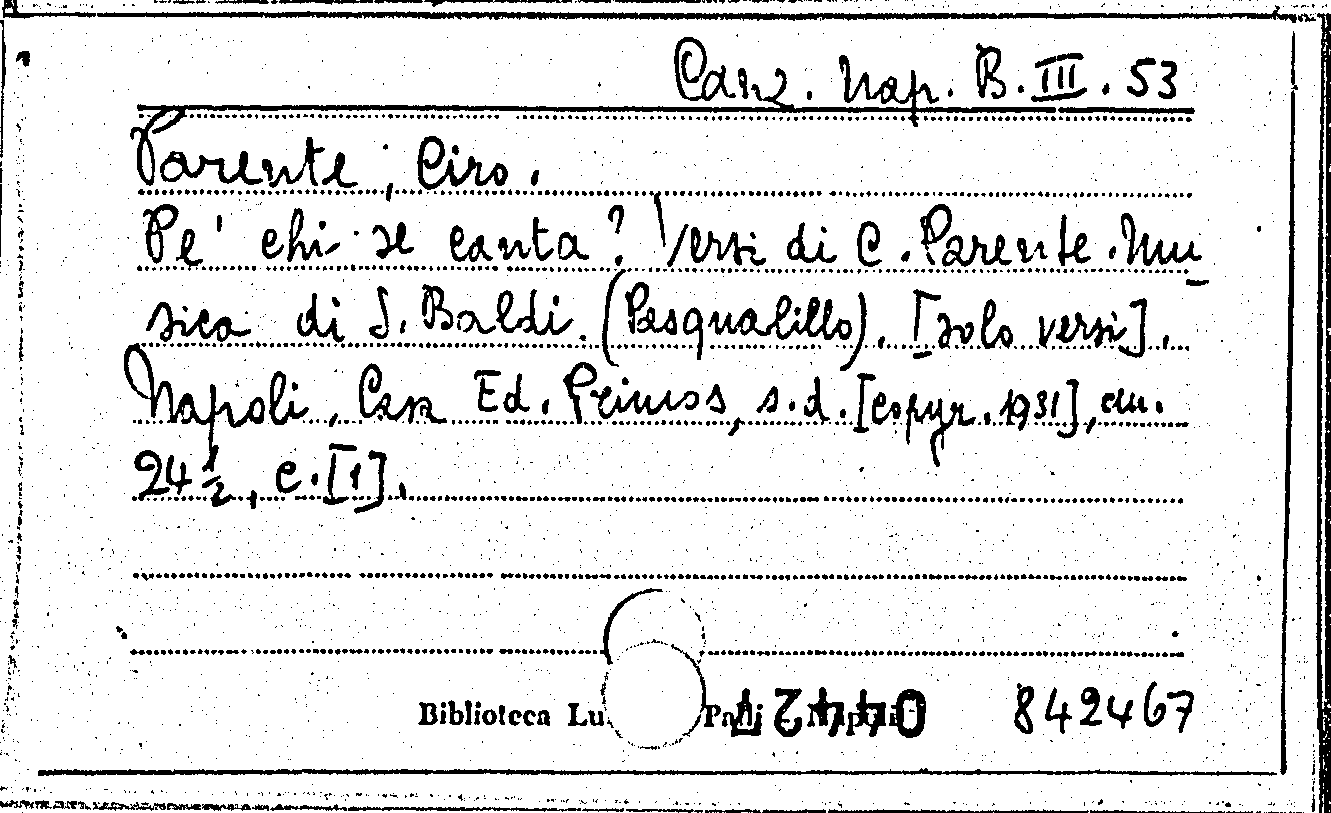 Canz. Nap. B. III. 53
Parente, Ciro.
Pe' chi se canta? Versi di C. Parente. Mu
sica di S. Baldi. (Pasqualillo). [solo versi].
Napoli, Casa Ed. Primos, s.d. [copyr. 1931], cm.
24 1/2, c. [1].
Biblioteca Lu Palli Napoli
044427
842467